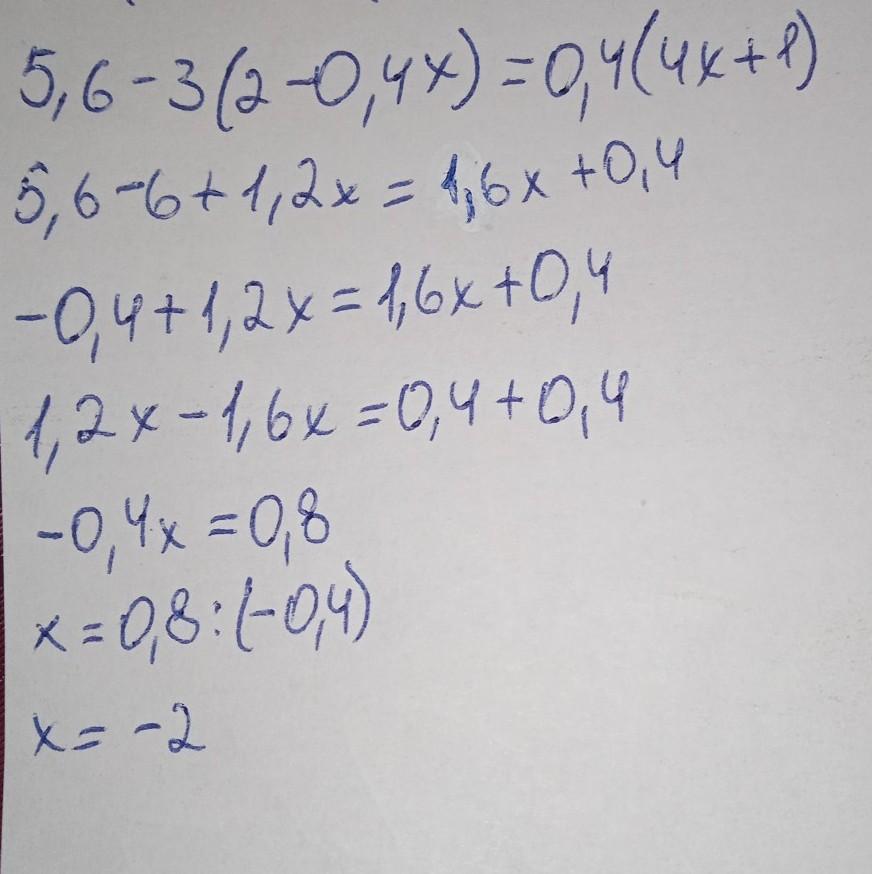 5,6-3(2-0,4x)=0,4(4x+1)
5,6-6+1,2x=1,6x+0,4
-0,4+1,2x=1,6x+0,4
1,2x-1,6x=0,4+0,4
-0,4x=0,8
x=0,8:(-0,4)
x=-2